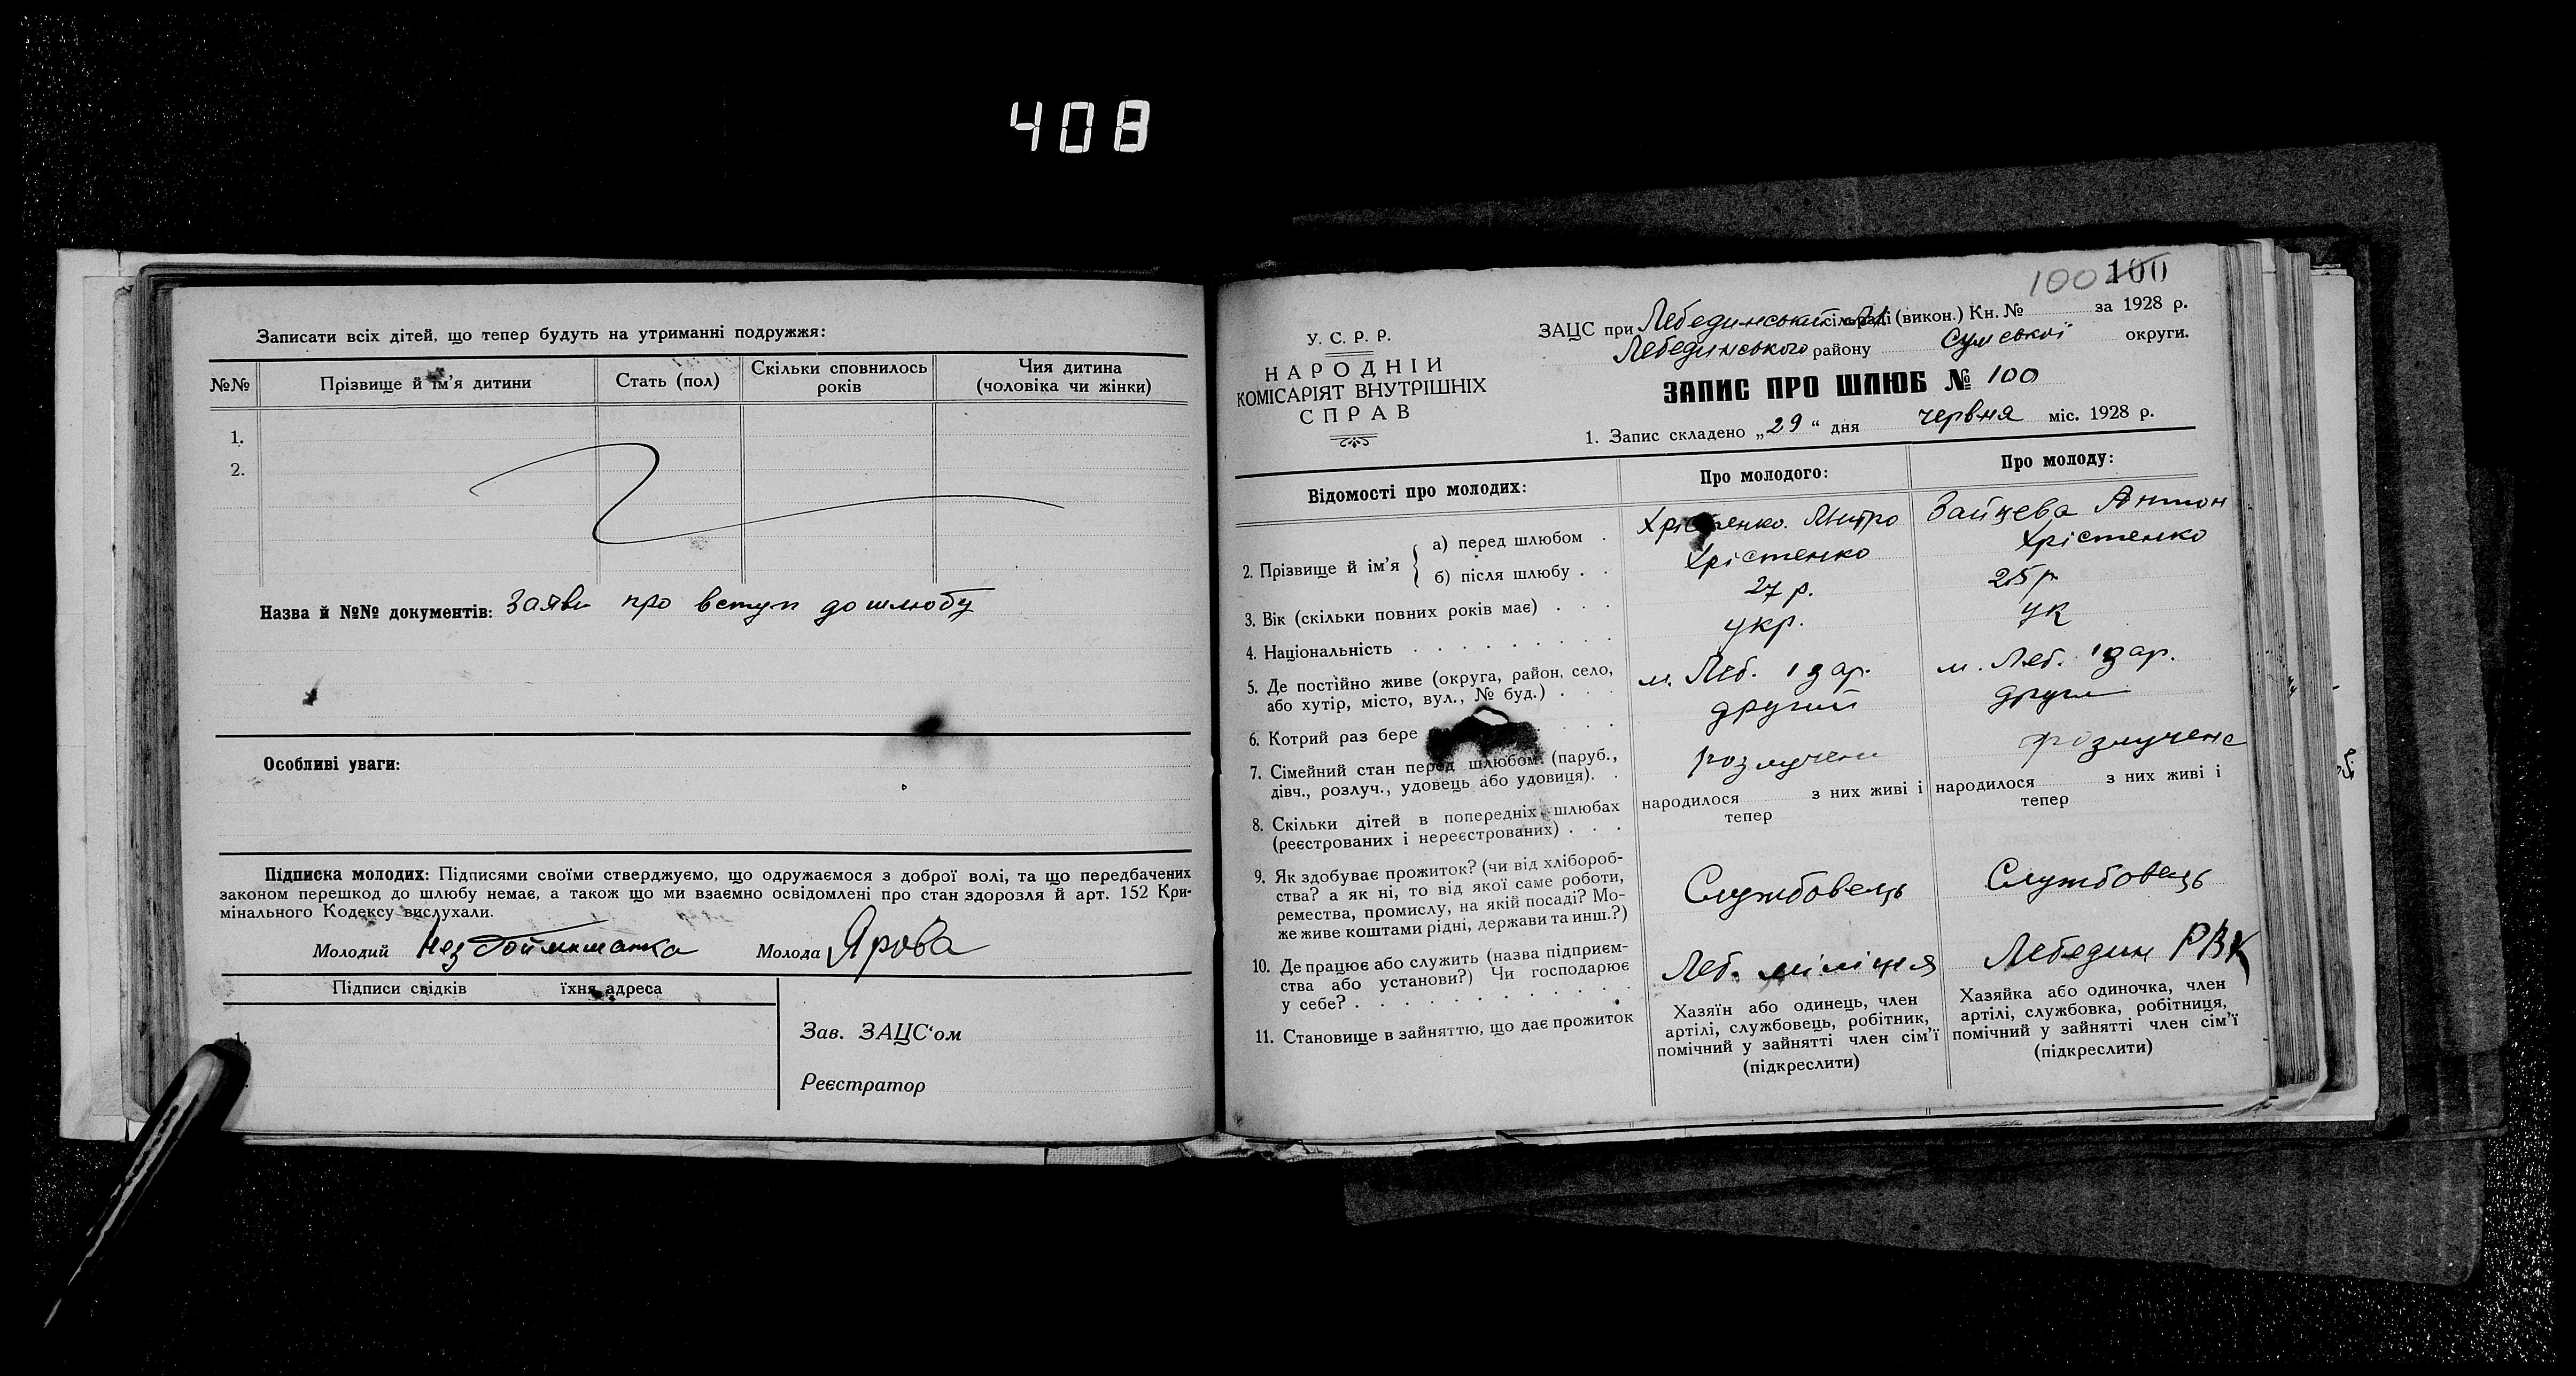 408
Записати всіх дітей, що тепер будуть на утриманні подружжя:
№№
Прізвище й ім'я дитини
Стать (пол)
Скільки сповнилось років
Чия дитина (чоловіка чи жінки)
1.
2.
Назва й №№ документів: Заяви про вступ до шлюбу
Особливі уваги:
Підписка молодих: Підписами своїми стверджуємо, що одружаємося з доброї волі, та що передбачених
законом перешкод до шлюбу немає, а також що ми взаємно освідомлені про стан здоровля й арт. 152 Кри-
мінального Кодексу вислухали.
Молодий Молода Ярова
Підписи свідків їхня адреса
1.
Зав. ЗАЦС'ом
Реєстратор
100 100
У. С. Р. Р.
НАРОДНІЙ
КОМІСАРІЯТ ВНУТРІШНІХ
СПРАВ
ЗАЦС при Лебединський сільраді (викон.) Кн. № за 1928 р.
Лебединського району Сумської округи.
ЗАПИС ПРО ШЛЮБ № 100
1. Запис складено „29“ дня червня міс. 1928 р.
Відомості про молодих:
Про молодого:
Про молоду:
2. Прізвище й ім'я
а) перед шлюбом
Хрістенко Дмитро
Зайцева Антон
б) після шлюбу
Хрістенко
Хрістенко
3. Вік (скільки повних років має)
27 р.
25 р
4. Національність
укр.
ук
5. Де постійно живе (округа, район, село,
або хутір, місто, вул., № буд.)
м. Леб. 1 д ар.
м. Леб. 1 д ар.
6. Котрий раз бере
другий
други
7. Сімейний стан перед шлюбом (паруб.,
дівч., розлуч., удовець або удовиця).
розлучени
розлучена
8. Скільки дітей в попередніх шлюбах
(реєстрованих і нереєстрованих)
народилося з них живі і
тепер
народилося з них живі і
тепер
9. Як здобуває прожиток? (чи від хлібороб-
ства? а як ні, то від якої саме роботи,
ремества, промислу, на якій посаді? Мо-
же живе коштами рідні, держави та инш.?)
Службовець
Службовець
10. Де працює або служить (назва підприєм-
ства або установи?) Чи господарює
у себе?
Леб. міліция
Лебедин РВК
11. Становище в зайняттю, що дає прожиток
Хазяїн або одинець, член
артілі, службовець, робітник,
помічний у зайнятті член сім'ї
(підкреслити)
Хазяйка або одиночка, член
артілі, службовка, робітниця,
помічний у зайнятті член сім'ї
(підкреслити)